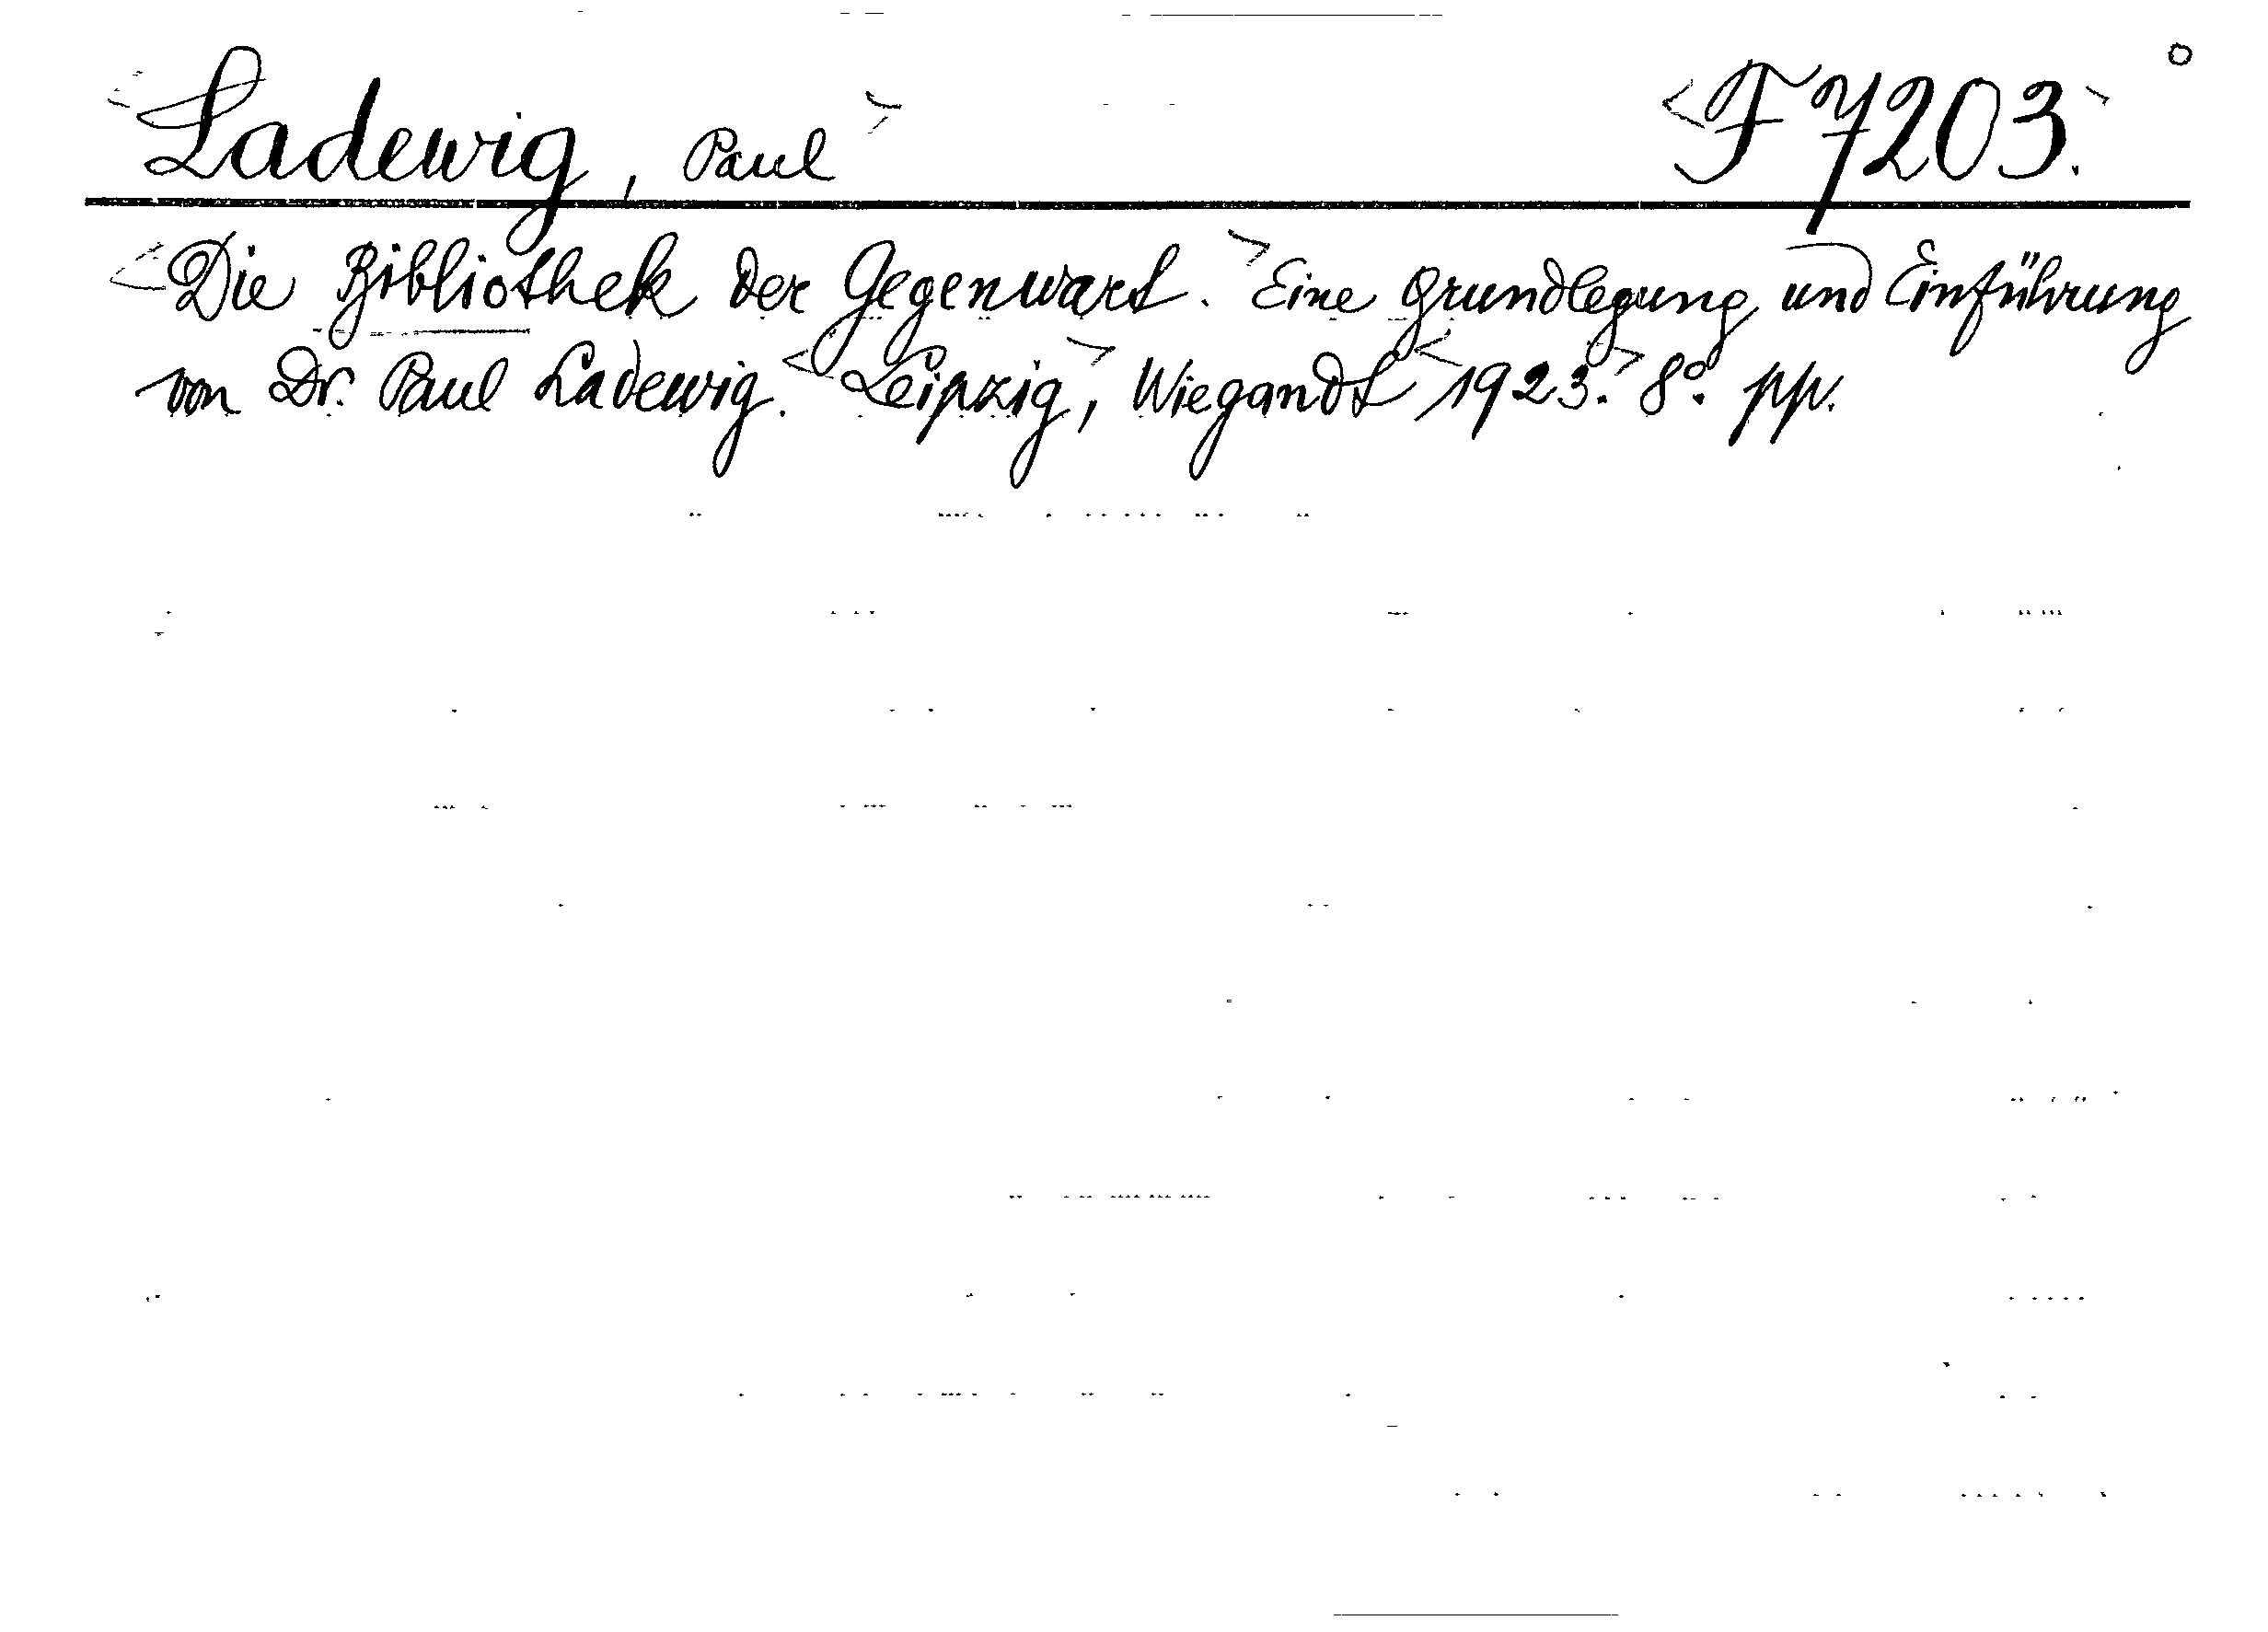 <Ladewig, Paul> <F 7203.>
<Die Bibliothek der Gegenwart.> Eine Grundlegung und Einführung
von Dr. Paul Ladewig. <Leipzig>, Wiegandt <1923.> 8°. pp.